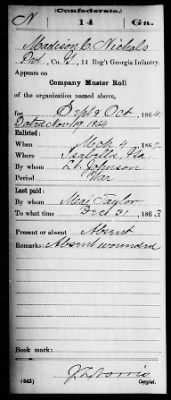 (Confederate.)
N 14 Ga.
Madison C. Nichols
Pvt, Co. , 14 Reg't Georgia Infantry.
Appears on
Company Muster Roll
of the organization named above,
for Sept & Oct, 1864.
Dated Nov 17 1864
Enlisted:
When Mch 4, 1862
Where Isabella, Ga
By whom Lt. Johnson
Period War
Last paid:
By whom Maj Taylor
To what time Dec 31, 1863.
Present or absent Absent
Remarks: Absent wounded
Book mark:
J. T. Norris
(642) Copyist.